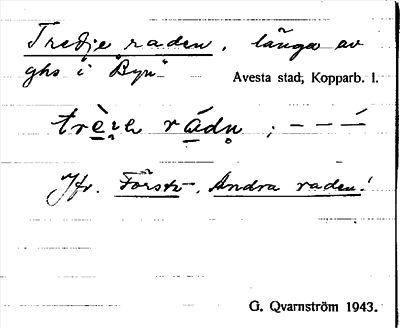 Tredje raden, länga av
ghs i "Byn"
Avesta stad, Kopparb. l.
trè̱ɪ̯e rá̱dn̥ ; – – –́
Jfr. Första-, Andra raden!
G. Qvarnström 1943.